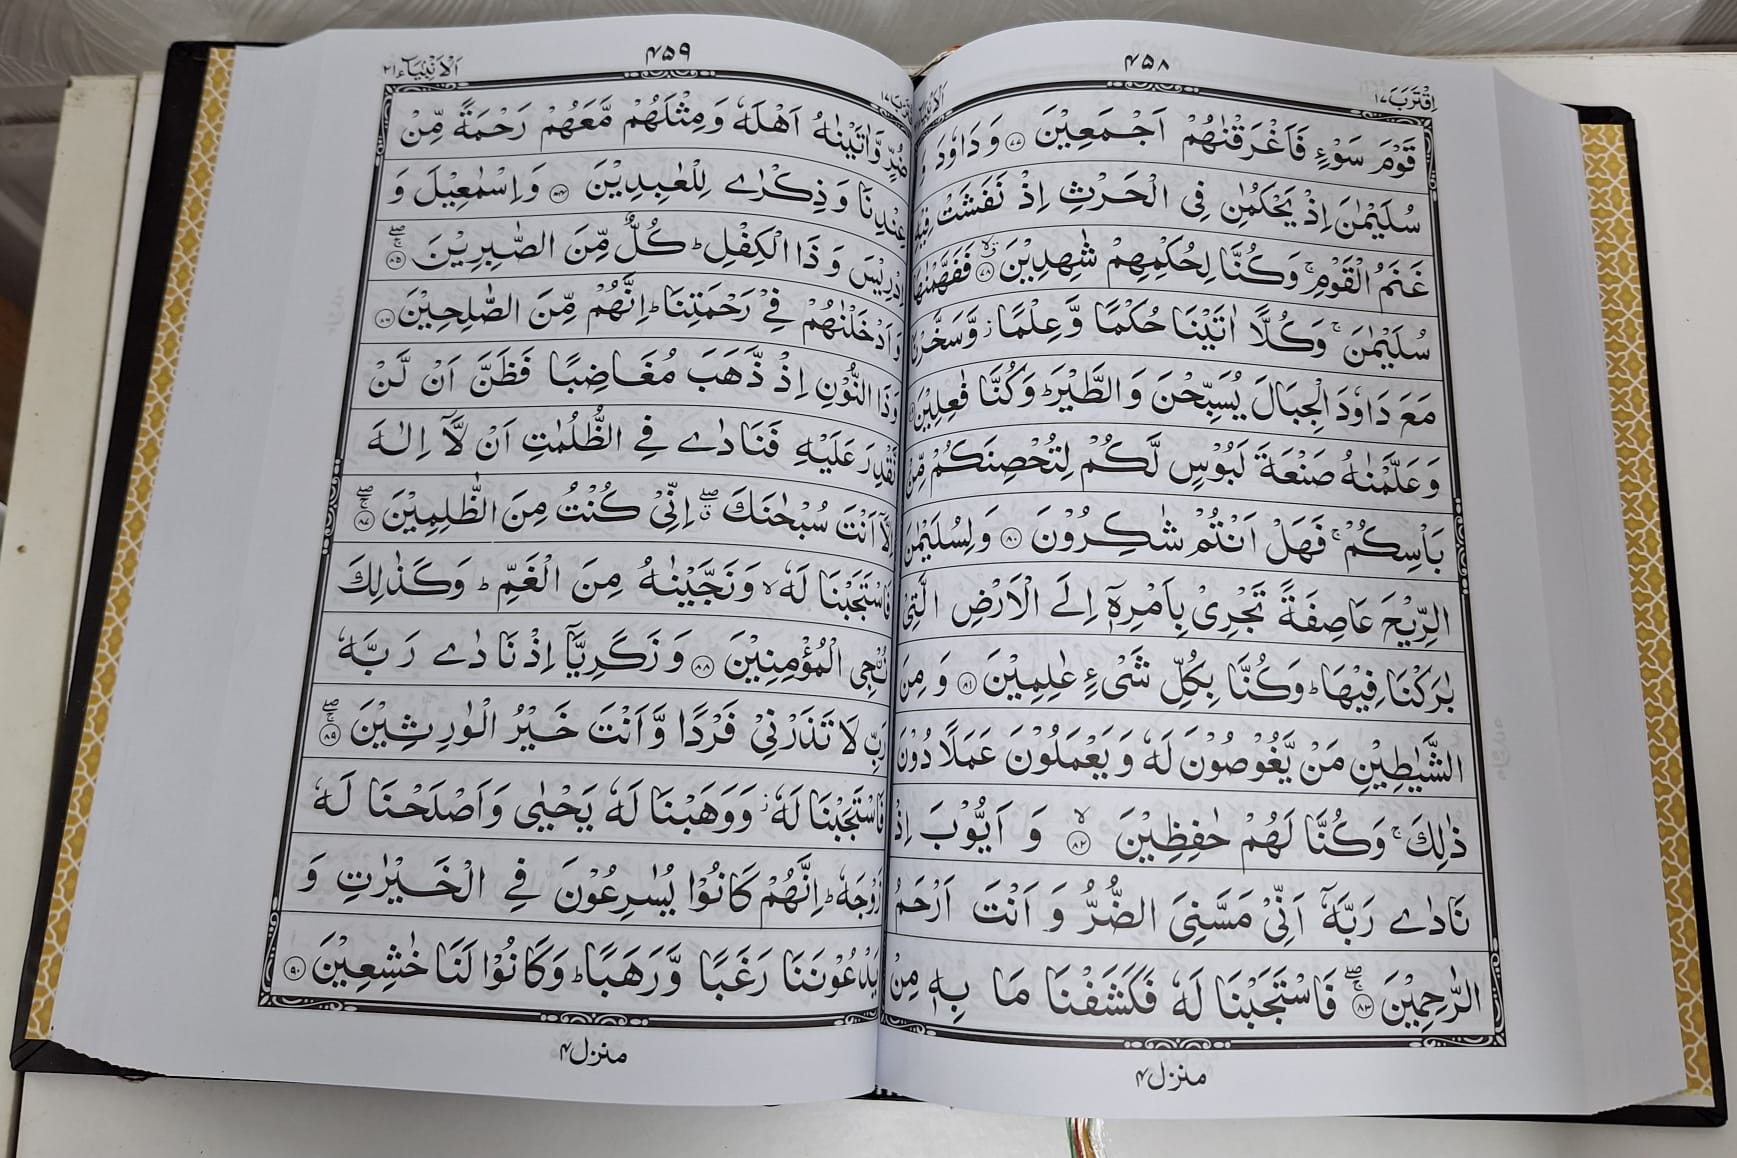 اِقْتَرَبَ ١٧
۴۵۸
قَوْمَ سَوْءٍ فَاَغْرَقْنٰهُمْ اَجْمَعِيْنَ ۝٧٧ وَ دَاوٗدَ وَ
سُلَيْمٰنَ اِذْ يَحْكُمٰنِ فِى الْحَرْثِ اِذْ نَفَشَتْ فِيْهِ
غَنَمُ الْقَوْمِ ۚ وَ كُنَّا لِحُكْمِهِمْ شٰهِدِيْنَ ۝٧٨ فَفَهَّمْنٰهَا
سُلَيْمٰنَ ۚ وَ كُلًّا اٰتَيْنَا حُكْمًا وَّ عِلْمًا ؗ وَّ سَخَّرْنَا
مَعَ دَاوٗدَ الْجِبَالَ يُسَبِّحْنَ وَ الطَّيْرَ ؕ وَ كُنَّا فٰعِلِيْنَ
وَ عَلَّمْنٰهُ صَنْعَةَ لَبُوْسٍ لَّكُمْ لِتُحْصِنَكُمْ مِّنْۢ
بَاْسِكُمْ ۚ فَهَلْ اَنْتُمْ شٰكِرُوْنَ ۝٨٠ وَ لِسُلَيْمٰنَ
الرِّيْحَ عَاصِفَةً تَجْرِىْ بِاَمْرِهٖۤ اِلَى الْاَرْضِ الَّتِىْ
بٰرَكْنَا فِيْهَا ؕ وَ كُنَّا بِكُلِّ شَىْءٍ عٰلِمِيْنَ ۝٨١ وَ مِنَ
الشَّيٰطِيْنِ مَنْ يَّغُوْصُوْنَ لَهٗ وَ يَعْمَلُوْنَ عَمَلًا دُوْنَ
ذٰلِكَ ۚ وَ كُنَّا لَهُمْ حٰفِظِيْنَ ۝٨٢ۙ وَ اَيُّوْبَ اِذْ
نَادٰى رَبَّهٗۤ اَنِّىْ مَسَّنِىَ الضُّرُّ وَ اَنْتَ اَرْحَمُ
الرّٰحِمِيْنَ ۝٨٣ۚۖ فَاسْتَجَبْنَا لَهٗ فَكَشَفْنَا مَا بِهٖ مِنْ
منزل ۴
اَلْاَنْۢبِيَآء ٢١
۴۵۹
ضُرٍّ وَّ اٰتَيْنٰهُ اَهْلَهٗ وَ مِثْلَهُمْ مَّعَهُمْ رَحْمَةً مِّنْ
عِنْدِنَا وَ ذِكْرٰى لِلْعٰبِدِيْنَ ۝٨٤ وَ اِسْمٰعِيْلَ وَ
اِدْرِيْسَ وَ ذَا الْكِفْلِ ؕ كُلٌّ مِّنَ الصّٰبِرِيْنَ ۝٨٥ۚۖ
وَ اَدْخَلْنٰهُمْ فِىْ رَحْمَتِنَا ؕ اِنَّهُمْ مِّنَ الصّٰلِحِيْنَ ۝٨٦
وَ ذَا النُّوْنِ اِذْ ذَّهَبَ مُغَاضِبًا فَظَنَّ اَنْ لَّنْ
نَّقْدِرَ عَلَيْهِ فَنَادٰى فِى الظُّلُمٰتِ اَنْ لَّاۤ اِلٰهَ
اِلَّاۤ اَنْتَ سُبْحٰنَكَ ۖۗ اِنِّىْ كُنْتُ مِنَ الظّٰلِمِيْنَ ۝٨٧ۚۖ
فَاسْتَجَبْنَا لَهٗ ۙ وَ نَجَّيْنٰهُ مِنَ الْغَمِّ ؕ وَ كَذٰلِكَ
نُـنْجِى الْمُؤْمِنِيْنَ ۝٨٨ وَ زَكَرِيَّاۤ اِذْ نَادٰى رَبَّهٗ
رَبِّ لَا تَذَرْنِىْ فَرْدًا وَّ اَنْتَ خَيْرُ الْوٰرِثِيْنَ ۝٨٩ۚۖ
فَاسْتَجَبْنَا لَهٗ ؗ وَ وَهَبْنَا لَهٗ يَحْيٰى وَ اَصْلَحْنَا لَهٗ
زَوْجَهٗ ؕ اِنَّهُمْ كَانُوْا يُسٰرِعُوْنَ فِى الْخَيْرٰتِ وَ
يَدْعُوْنَنَا رَغَبًا وَّ رَهَبًا ؕ وَ كَانُوْا لَنَا خٰشِعِيْنَ ۝٩٠
منزل ۴